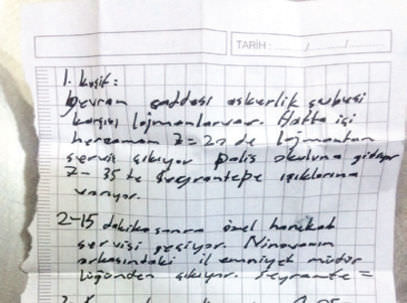 TARİH : / /
1. kısif =
Devran caddesi askerlik şubesi
karşısı lojmanlar var. Hafta içi
her zaman 7=20 de lojmandan
servis çıkıyor polis okuluna gidiyor
7-35 te Seyrantepe ışıklarına
varıyor.
2-15 dakika sonra özel harekat
servisi geçiyor. Ninovanın
arkasındaki il emniyet müdür
lüğünden çıkıyor. Seyrante =